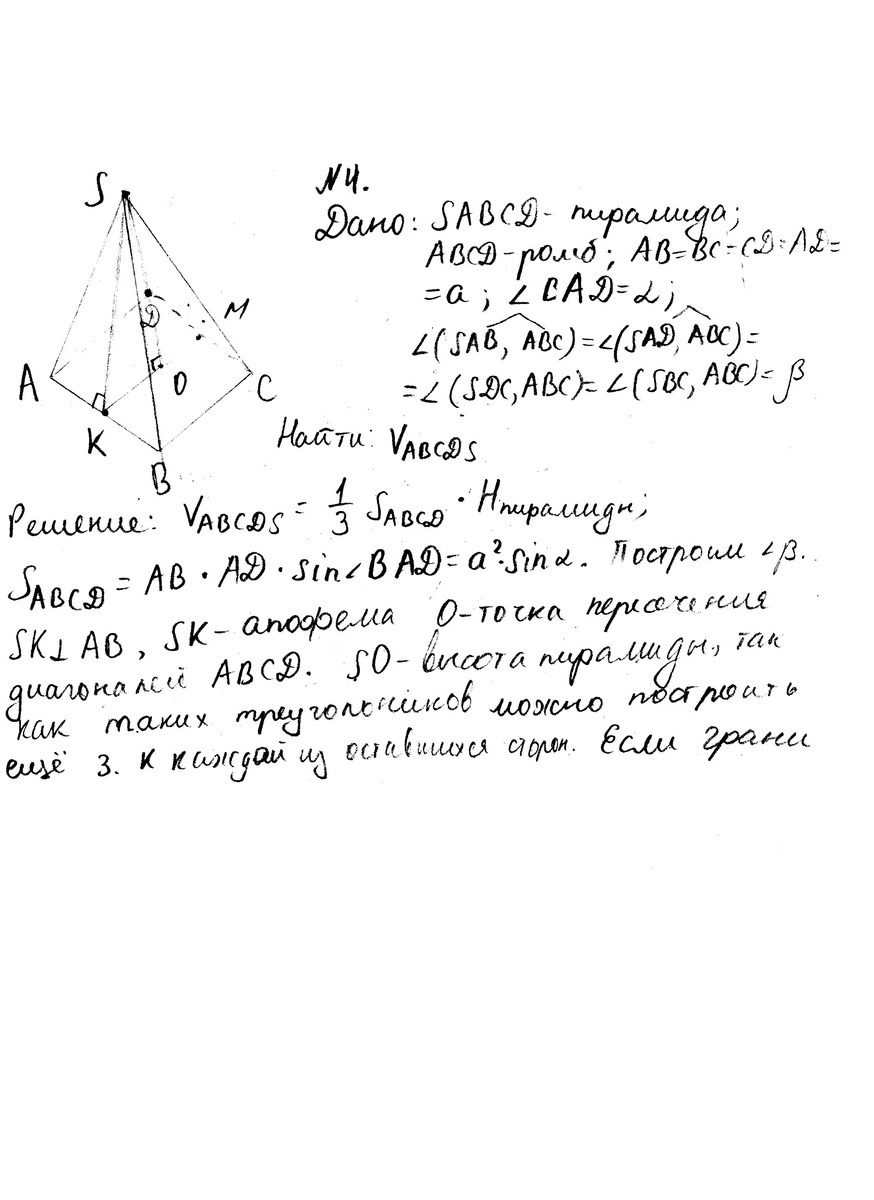 N4.
Дано: SABCD - пирамида;
ABCD - ромб; AB=BC=CD=AD=
=a; ∠BAD=α;
∠(SAB, ABC)=∠(SAD, ABC)=
=∠(SDC, ABC)=∠(SBC, ABC)=β
Найти: V_ABCDS
S
D
M
A
O
C
K
B
Решение: V_ABCDS = 1/3 S_ABCD · H пирамиды;
S_ABCD = AB · AD · sin∠BAD = a²·sinα. Построим ∠β.
SK⊥AB, SK - апофема О-точка пересечения
диагоналей ABCD. SO - высота пирамиды, так
как таких треугольников можно построить
ещё 3. к каждой из оставшихся сторон. Если грани